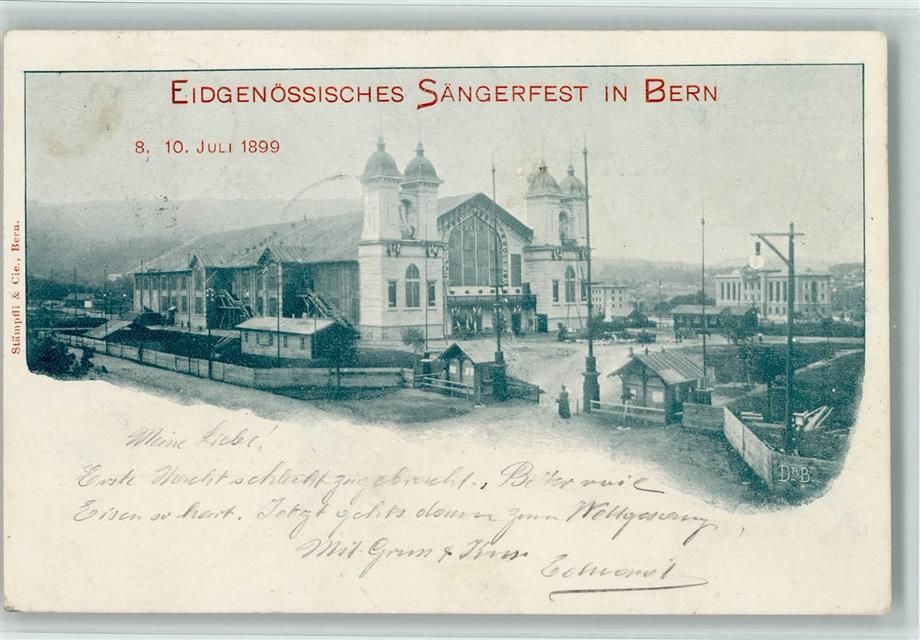 EIDGENÖSSISCHES SÄNGERFEST IN BERN
8. 10. JULI 1899
Stämpfli & Cie., Bern.
DR B
Meine Liebe!
Erste Nacht schlecht zugebracht., Better wie
Eisen so hart. Jetzt gehts dann zum Wettgesang
Mit Gruss & Kuss
Edward